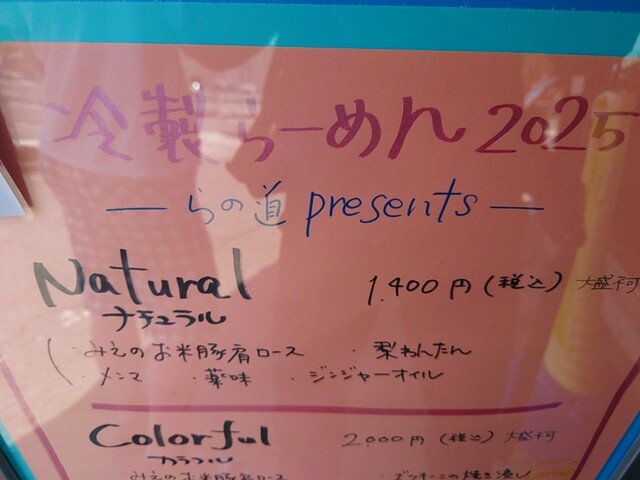 冷製らーめん 2025
— らの道 presents —
Natural 1,400円(税込) 大盛不可
ナチュラル
(・みえのお米豚肩ロース ・梨わんたん
・メンマ ・薬味 ・ジンジャーオイル
Colorful 2000円(税込) 大盛不可
カラフル
みえのお米豚肩ロース ・ズッキーニの焼き浸し